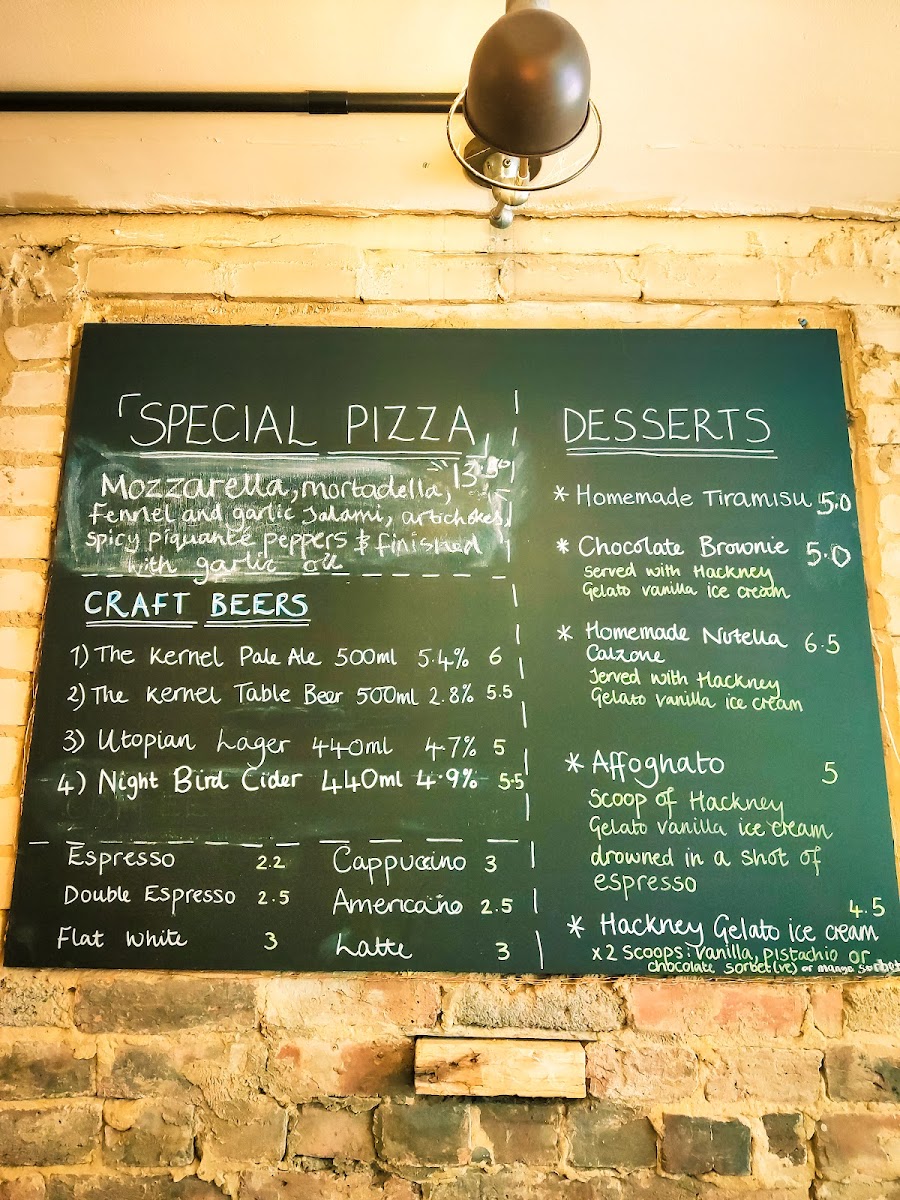 SPECIAL PIZZA
Mozzarella, mortadella,
fennel and garlic salami, artichokes,
spicy piquante peppers & finished
with garlic oil
CRAFT BEERS
1) The Kernel Pale Ale 500ml 5.4% 6
2) The Kernel Table Beer 500ml 2.8% 5.5
3) Utopian Lager 440ml 4.7% 5
4) Night Bird Cider 440ml 4.9% 5.5
Espresso 2.2
Double Espresso 2.5
Flat White 3
Cappuccino 3
Americano 2.5
Latte 3
DESSERTS
* Homemade Tiramisu 5.0
* Chocolate Brownie 5.0
served with Hackney
Gelato vanilla ice cream
* Homemade Nutella 6.5
Calzone
Served with Hackney
Gelato vanilla ice cream
* Affoghato 5
Scoop of Hackney
Gelato vanilla ice cream
drowned in a shot of
espresso
4.5
* Hackney Gelato ice cream
x2 scoops: vanilla, pistachio or
chocolate sorbet (ve) or mango sorbet